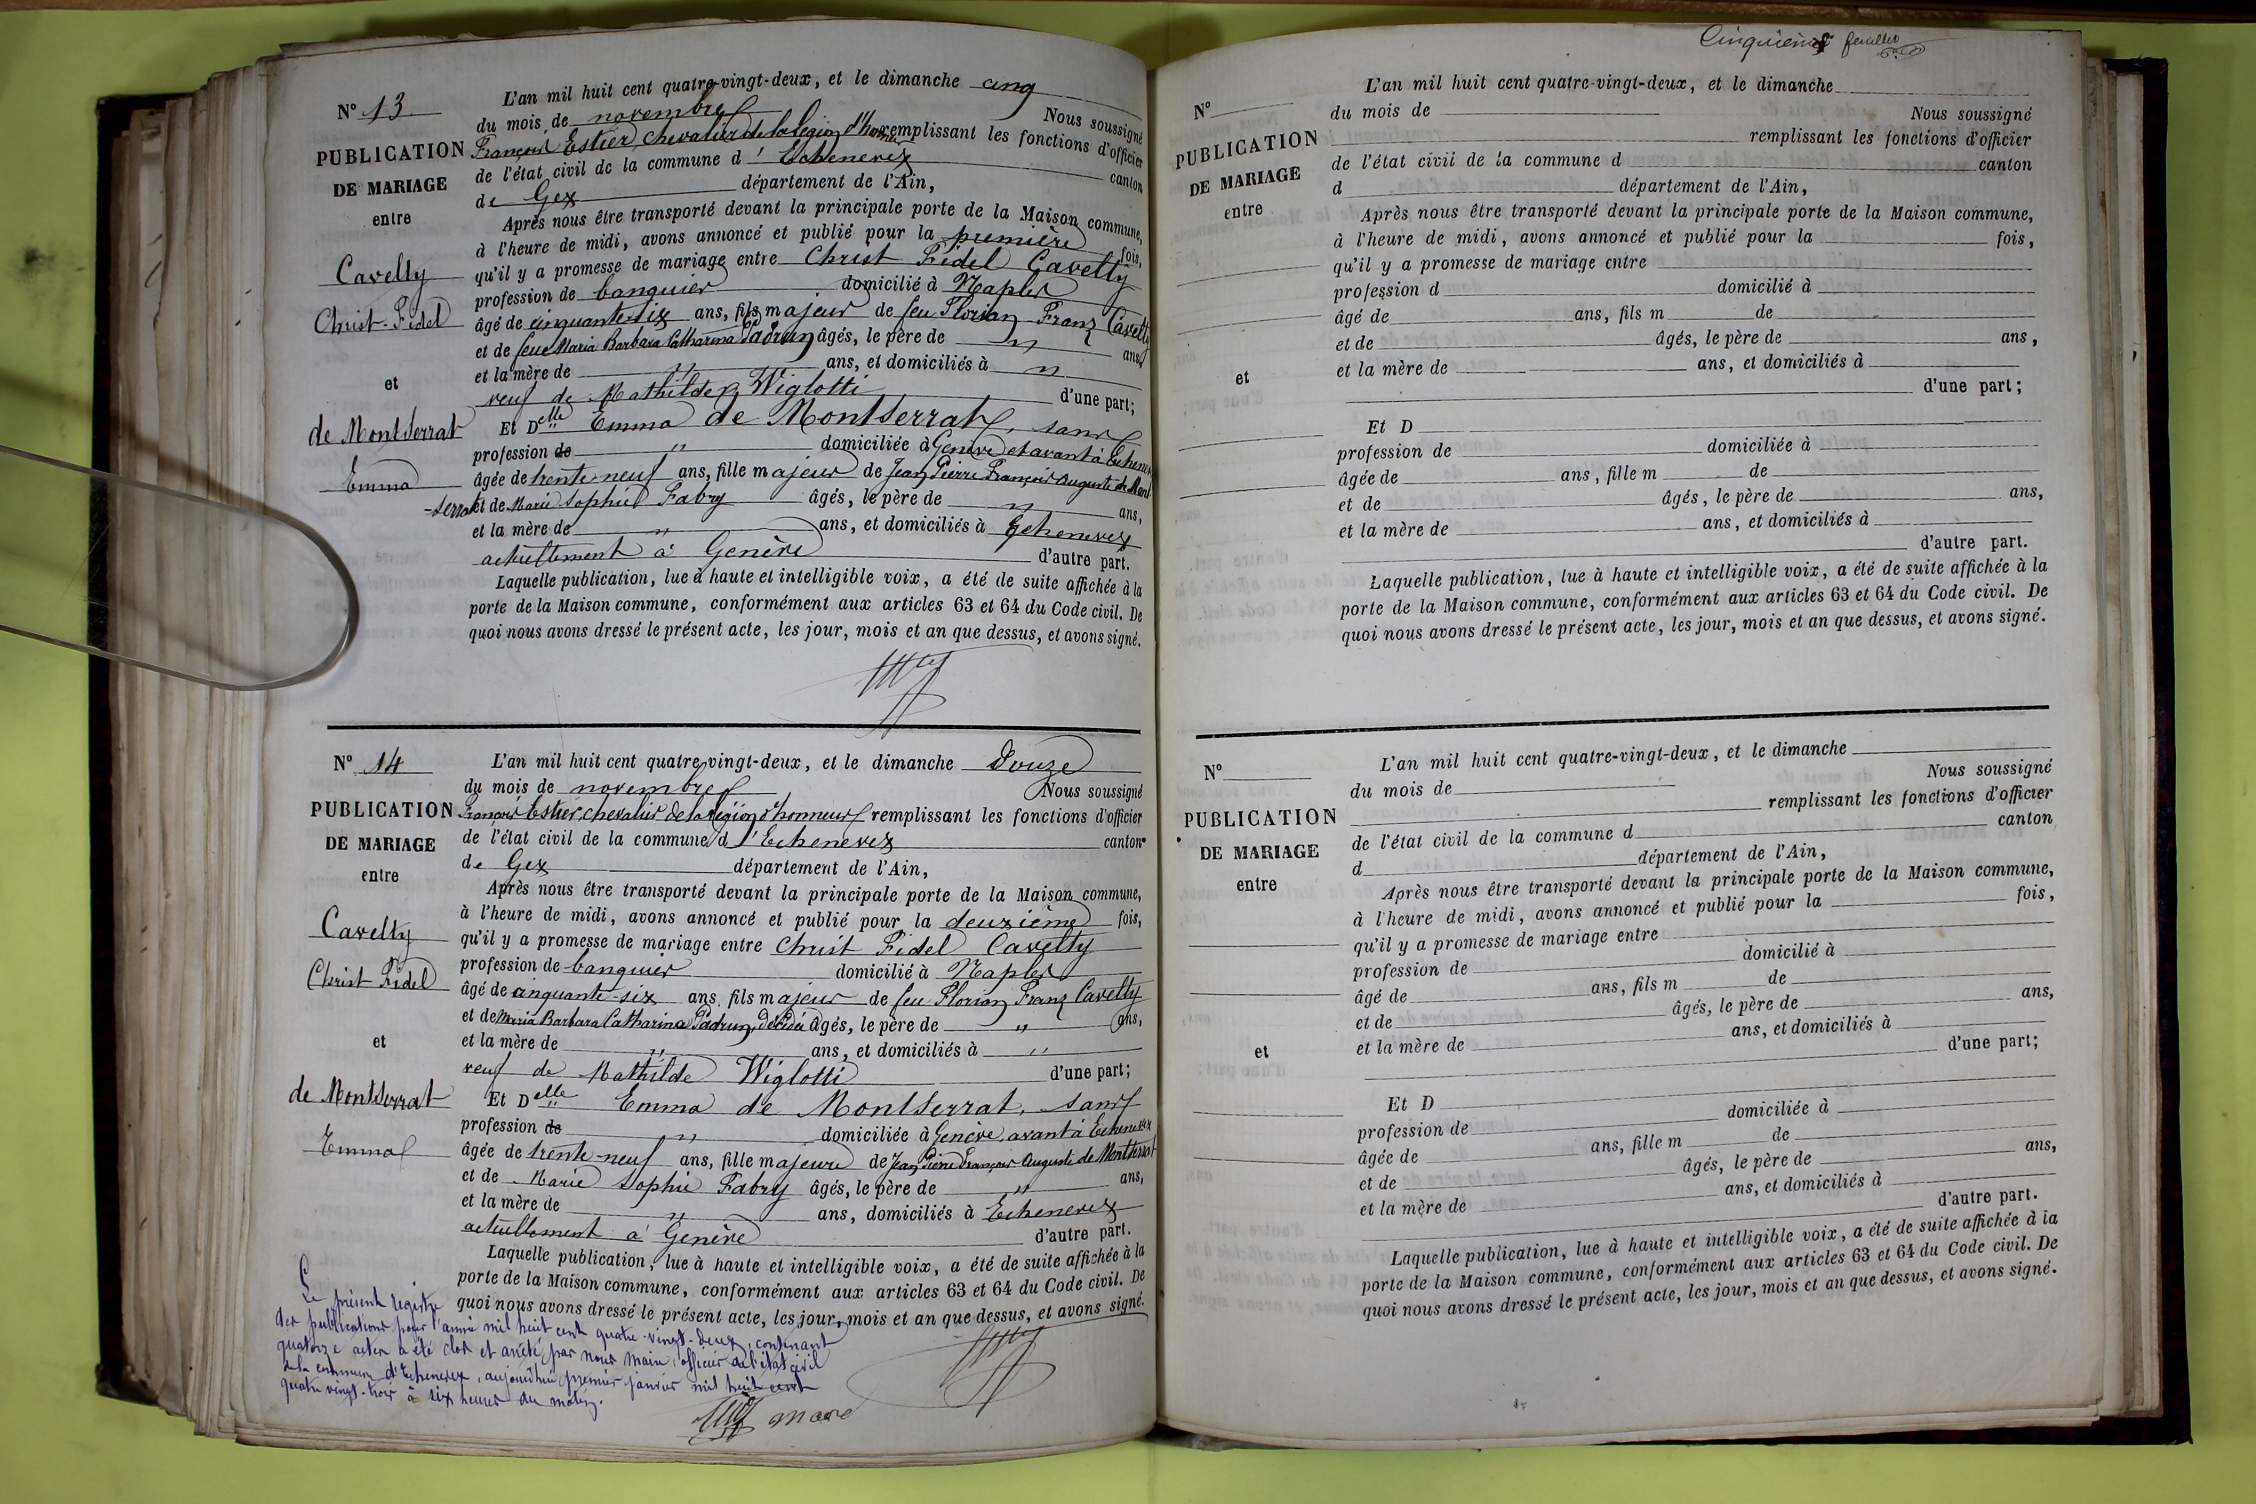 N° 13
PUBLICATION
DE MARIAGE
entre
Cavelty
Christ-Fidel
et
de Montserrat
Emma
L'an mil huit cent quatre-vingt-deux, et le dimanche cinq
du mois de novembre Nous soussigné
François Estier, chevalier de la légion d'honneur remplissant les fonctions d'officier
de l'état civil de la commune d'Echenevex canton
de Gex département de l'Ain,
Après nous être transporté devant la principale porte de la Maison commune,
à l'heure de midi, avons annoncé et publié pour la première fois,
qu'il y a promesse de mariage entre Christ Fidel Cavelty
profession de banquier domicilié à Naples
âgé de cinquante-six ans, fils majeur de feu Florian Franz Cavelty
et de feue Maria Barbara Catharina Padrun âgés, le père de " ans
et la mère de " ans, et domiciliés à "
veuf de Mathilde Wiglotti d'une part;
Et Delle Emma de Montserrat, sans
profession de " domiciliée à Genève et avant à Echenevex
âgée de trente-neuf ans, fille majeur de Jean Pierre François Auguste de Mont
-serrat et de Marie Sophie Fabry âgés, le père de " ans,
et la mère de " ans, et domiciliés à Echenevex
actuellement à Genève d'autre part.
Laquelle publication, lue à haute et intelligible voix, a été de suite affichée à la
porte de la Maison commune, conformément aux articles 63 et 64 du Code civil. De
quoi nous avons dressé le présent acte, les jour, mois et an que dessus, et avons signé.
N° 14
PUBLICATION
DE MARIAGE
entre
Cavelty
Christ Fidel
et
de Montserrat
Emma
L'an mil huit cent quatre-vingt-deux, et le dimanche douze
du mois de novembre Nous soussigné
François Estier, chevalier de la légion d'honneur remplissant les fonctions d'officier
de l'état civil de la commune d'Echenevex canton
de Gex département de l'Ain,
Après nous être transporté devant la principale porte de la Maison commune,
à l'heure de midi, avons annoncé et publié pour la deuxième fois,
qu'il y a promesse de mariage entre Christ Fidel Cavelty
profession de banquier domicilié à Naples
âgé de cinquante-six ans, fils majeur de feu Florian Franz Cavelty
et de Maria Barbara Catharina Padrun, décédée âgés, le père de " ans,
et la mère de " ans, et domiciliés à "
veuf de Mathilde Wiglotti d'une part;
Et Delle Emma de Montserrat, sans
profession de " domiciliée à Genève, avant à Echenevex
âgée de trente-neuf ans, fille majeure de Jean Pierre François Auguste de Montserrat
et de Marie Sophie Fabry âgés, le père de " ans,
et la mère de " ans, domiciliés à Echenevex
actuellement à Genève d'autre part.
Laquelle publication, lue à haute et intelligible voix, a été de suite affichée à la
porte de la Maison commune, conformément aux articles 63 et 64 du Code civil. De
quoi nous avons dressé le présent acte, les jour, mois et an que dessus, et avons signé.
Le présent registre
des publications pour l'année mil huit cent quatre-vingt-deux, contenant
quatorze actes a été clos et arrêté par nous maire, officier de l'état civil
de la commune d'Echenevex, aujourd'hui premier janvier mil huit cent
quatre vingt-trois à six heures du matin.
maire
Cinquième feuillet
N°
PUBLICATION
DE MARIAGE
entre
et
L'an mil huit cent quatre-vingt-deux, et le dimanche
du mois de Nous soussigné
remplissant les fonctions d'officier
de l'état civil de la commune d canton
d département de l'Ain,
Après nous être transporté devant la principale porte de la Maison commune,
à l'heure de midi, avons annoncé et publié pour la fois,
qu'il y a promesse de mariage entre
profession d domicilié à
âgé de ans, fils m de
et de âgés, le père de ans,
et la mère de ans, et domiciliés à
d'une part;
Et D
profession de domiciliée à
âgée de ans, fille m de
et de âgés, le père de ans,
et la mère de ans, et domiciliés à
d'autre part.
Laquelle publication, lue à haute et intelligible voix, a été de suite affichée à la
porte de la Maison commune, conformément aux articles 63 et 64 du Code civil. De
quoi nous avons dressé le présent acte, les jour, mois et an que dessus, et avons signé.
N°
PUBLICATION
DE MARIAGE
entre
et
L'an mil huit cent quatre-vingt-deux, et le dimanche
du mois de Nous soussigné
remplissant les fonctions d'officier
de l'état civil de la commune d canton
d département de l'Ain,
Après nous être transporté devant la principale porte de la Maison commune,
à l'heure de midi, avons annoncé et publié pour la fois,
qu'il y a promesse de mariage entre
profession de domicilié à
âgé de ans, fils m de
et de âgés, le père de ans,
et la mère de ans, et domiciliés à
d'une part;
Et D
profession de domiciliée à
âgée de ans, fille m de
et de âgés, le père de ans,
et la mère de ans, et domiciliés à
d'autre part.
Laquelle publication, lue à haute et intelligible voix, a été de suite affichée à la
porte de la Maison commune, conformément aux articles 63 et 64 du Code civil. De
quoi nous avons dressé le présent acte, les jour, mois et an que dessus, et avons signé.